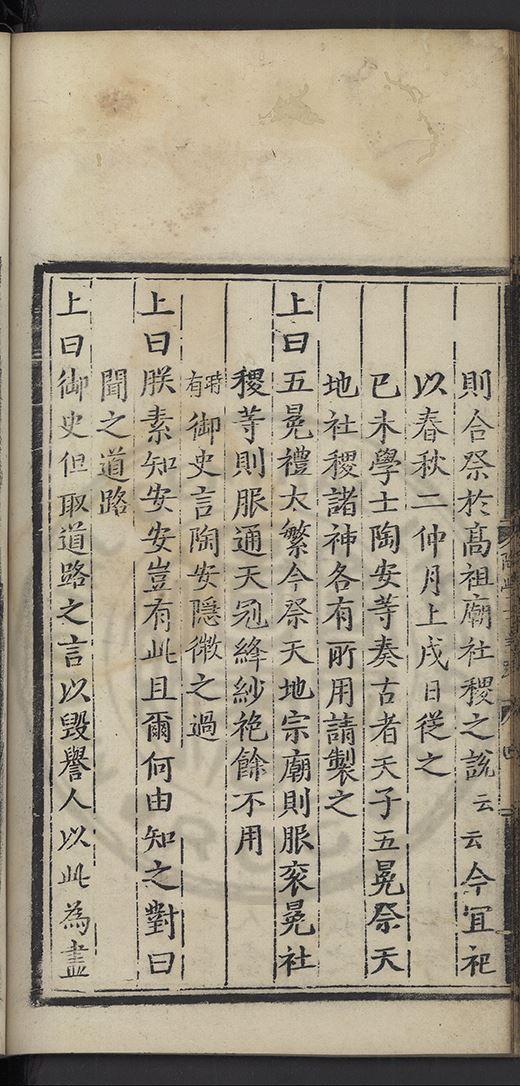 則合祭於高祖廟社稷之說云云今宜祀
以春秋二仲月上戊日從之
已未學士陶安等奏古者天子五冕祭天
地社稷諸神各有所用請製之
上曰五冕禮太繁今祭天地宗廟則服衮冕社
稷等則服通天冠絳紗袍餘不用
時有御史言陶安隱微之過
上曰朕素知安安豈有此且爾何由知之對曰
聞之道路
上曰御史但取道路之言以毀譽人以此為盡